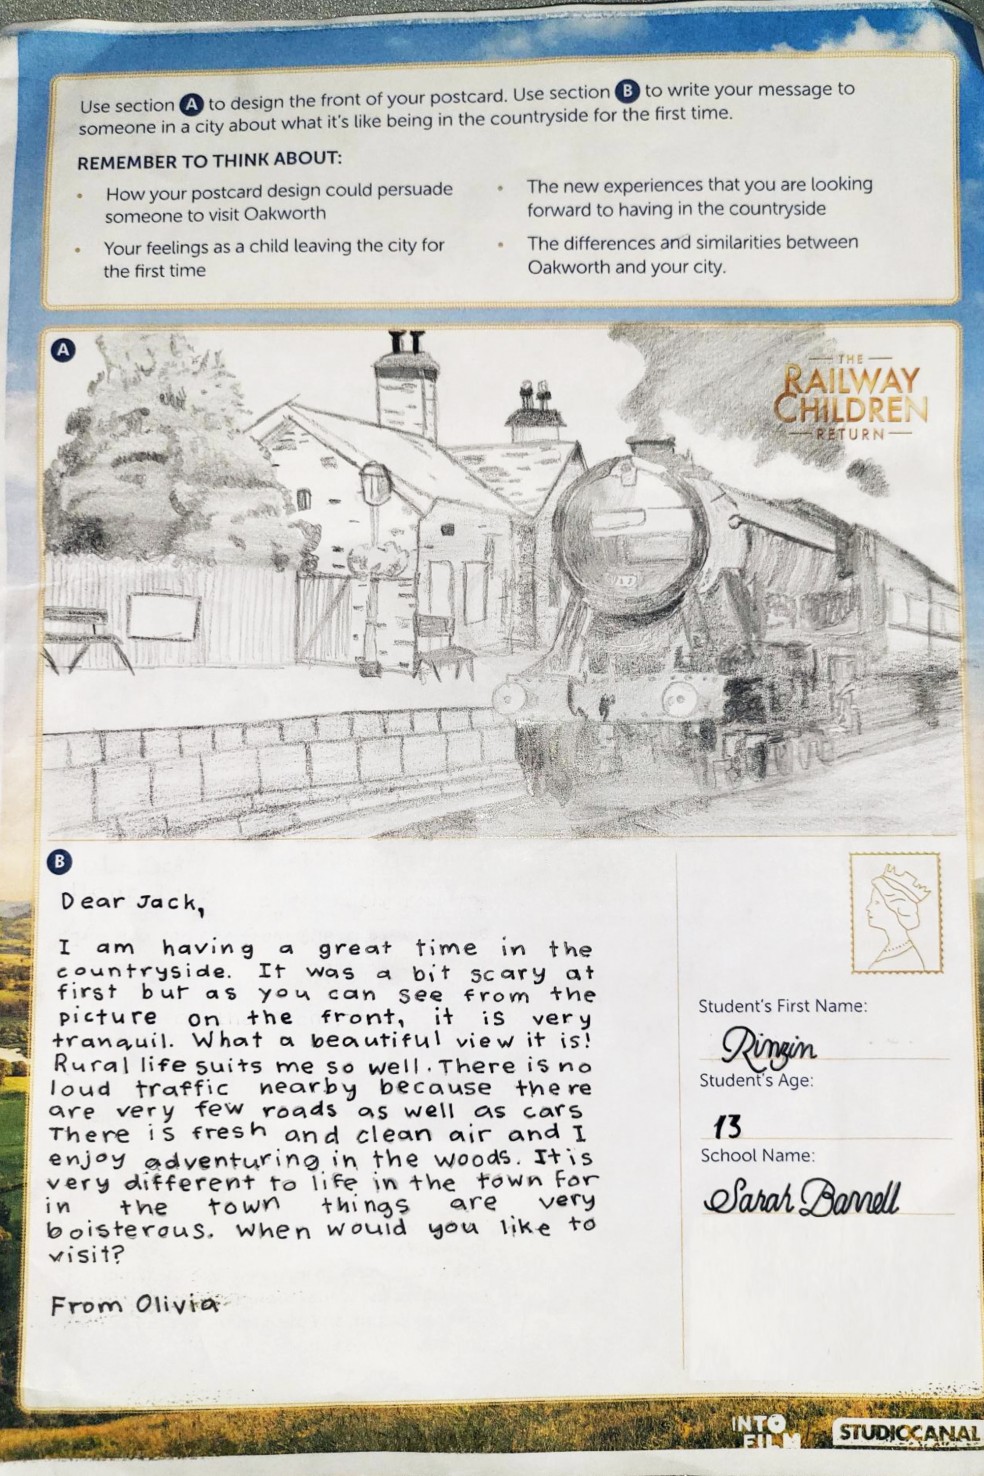 Use section A to design the front of your postcard. Use section B to write your message to
someone in a city about what it's like being in the countryside for the first time.
REMEMBER TO THINK ABOUT:
• How your postcard design could persuade
someone to visit Oakworth
• Your feelings as a child leaving the city for
the first time
• The new experiences that you are looking
forward to having in the countryside
• The differences and similarities between
Oakworth and your city.
A
THE
RAILWAY
CHILDREN
RETURN
B
Dear Jack,
I am having a great time in the
countryside. It was a bit scary at
first but as you can see from the
picture on the front, it is very
tranquil. What a beautiful view it is!
Rural life suits me so well. There is no
loud traffic nearby because there
are very few roads as well as cars
There is fresh and clean air and I
enjoy adventuring in the woods. It is
very different to life in the town for
in the town things are very
boisterous. When would you like to
visit?
From Olivia
Student's First Name:
Rinzin
Student's Age:
13
School Name:
Sarah Bonnell
INTO
FILM
STUDIOCANAL